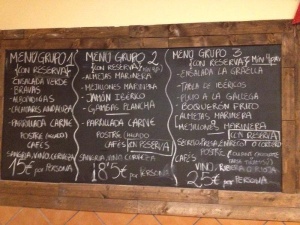 MENÚ GRUPO 1
(CON RESERVA)
ENSALADA VERDE
BRAVAS
ALBÓNDIGAS
PARRILLADA CARNE
POSTRE
CAFÉS
SANGRIA, VINO, CERVEZA
15€ por PERSONA
MENÚ GRUPO 2
(CON RESERVA)
ALMEJAS MARINERA
MEJILLONES MARINERA
JAMÓN IBÉRICO
GAMBAS PLANCHA
PARRILLADA CARNE
POSTRE (HELADO)
CAFÉS CON RESERVA
SANGRIA, VINO, CERVEZA
18'5€ por PERSONA
MENÚ GRUPO 3
(CON RESERVA)
ENSALADA LA GRAELLA
TABLA DE IBÉRICOS
PULPO A LA GALLEGA
BOQUERÓN FRITO
ALMEJAS MARINERA
MEJILLONES MARINERA
CON RESERVA
POSTRE
CAFÉS
VINO, RIBERA O RIOJA
25€ por PERSONA